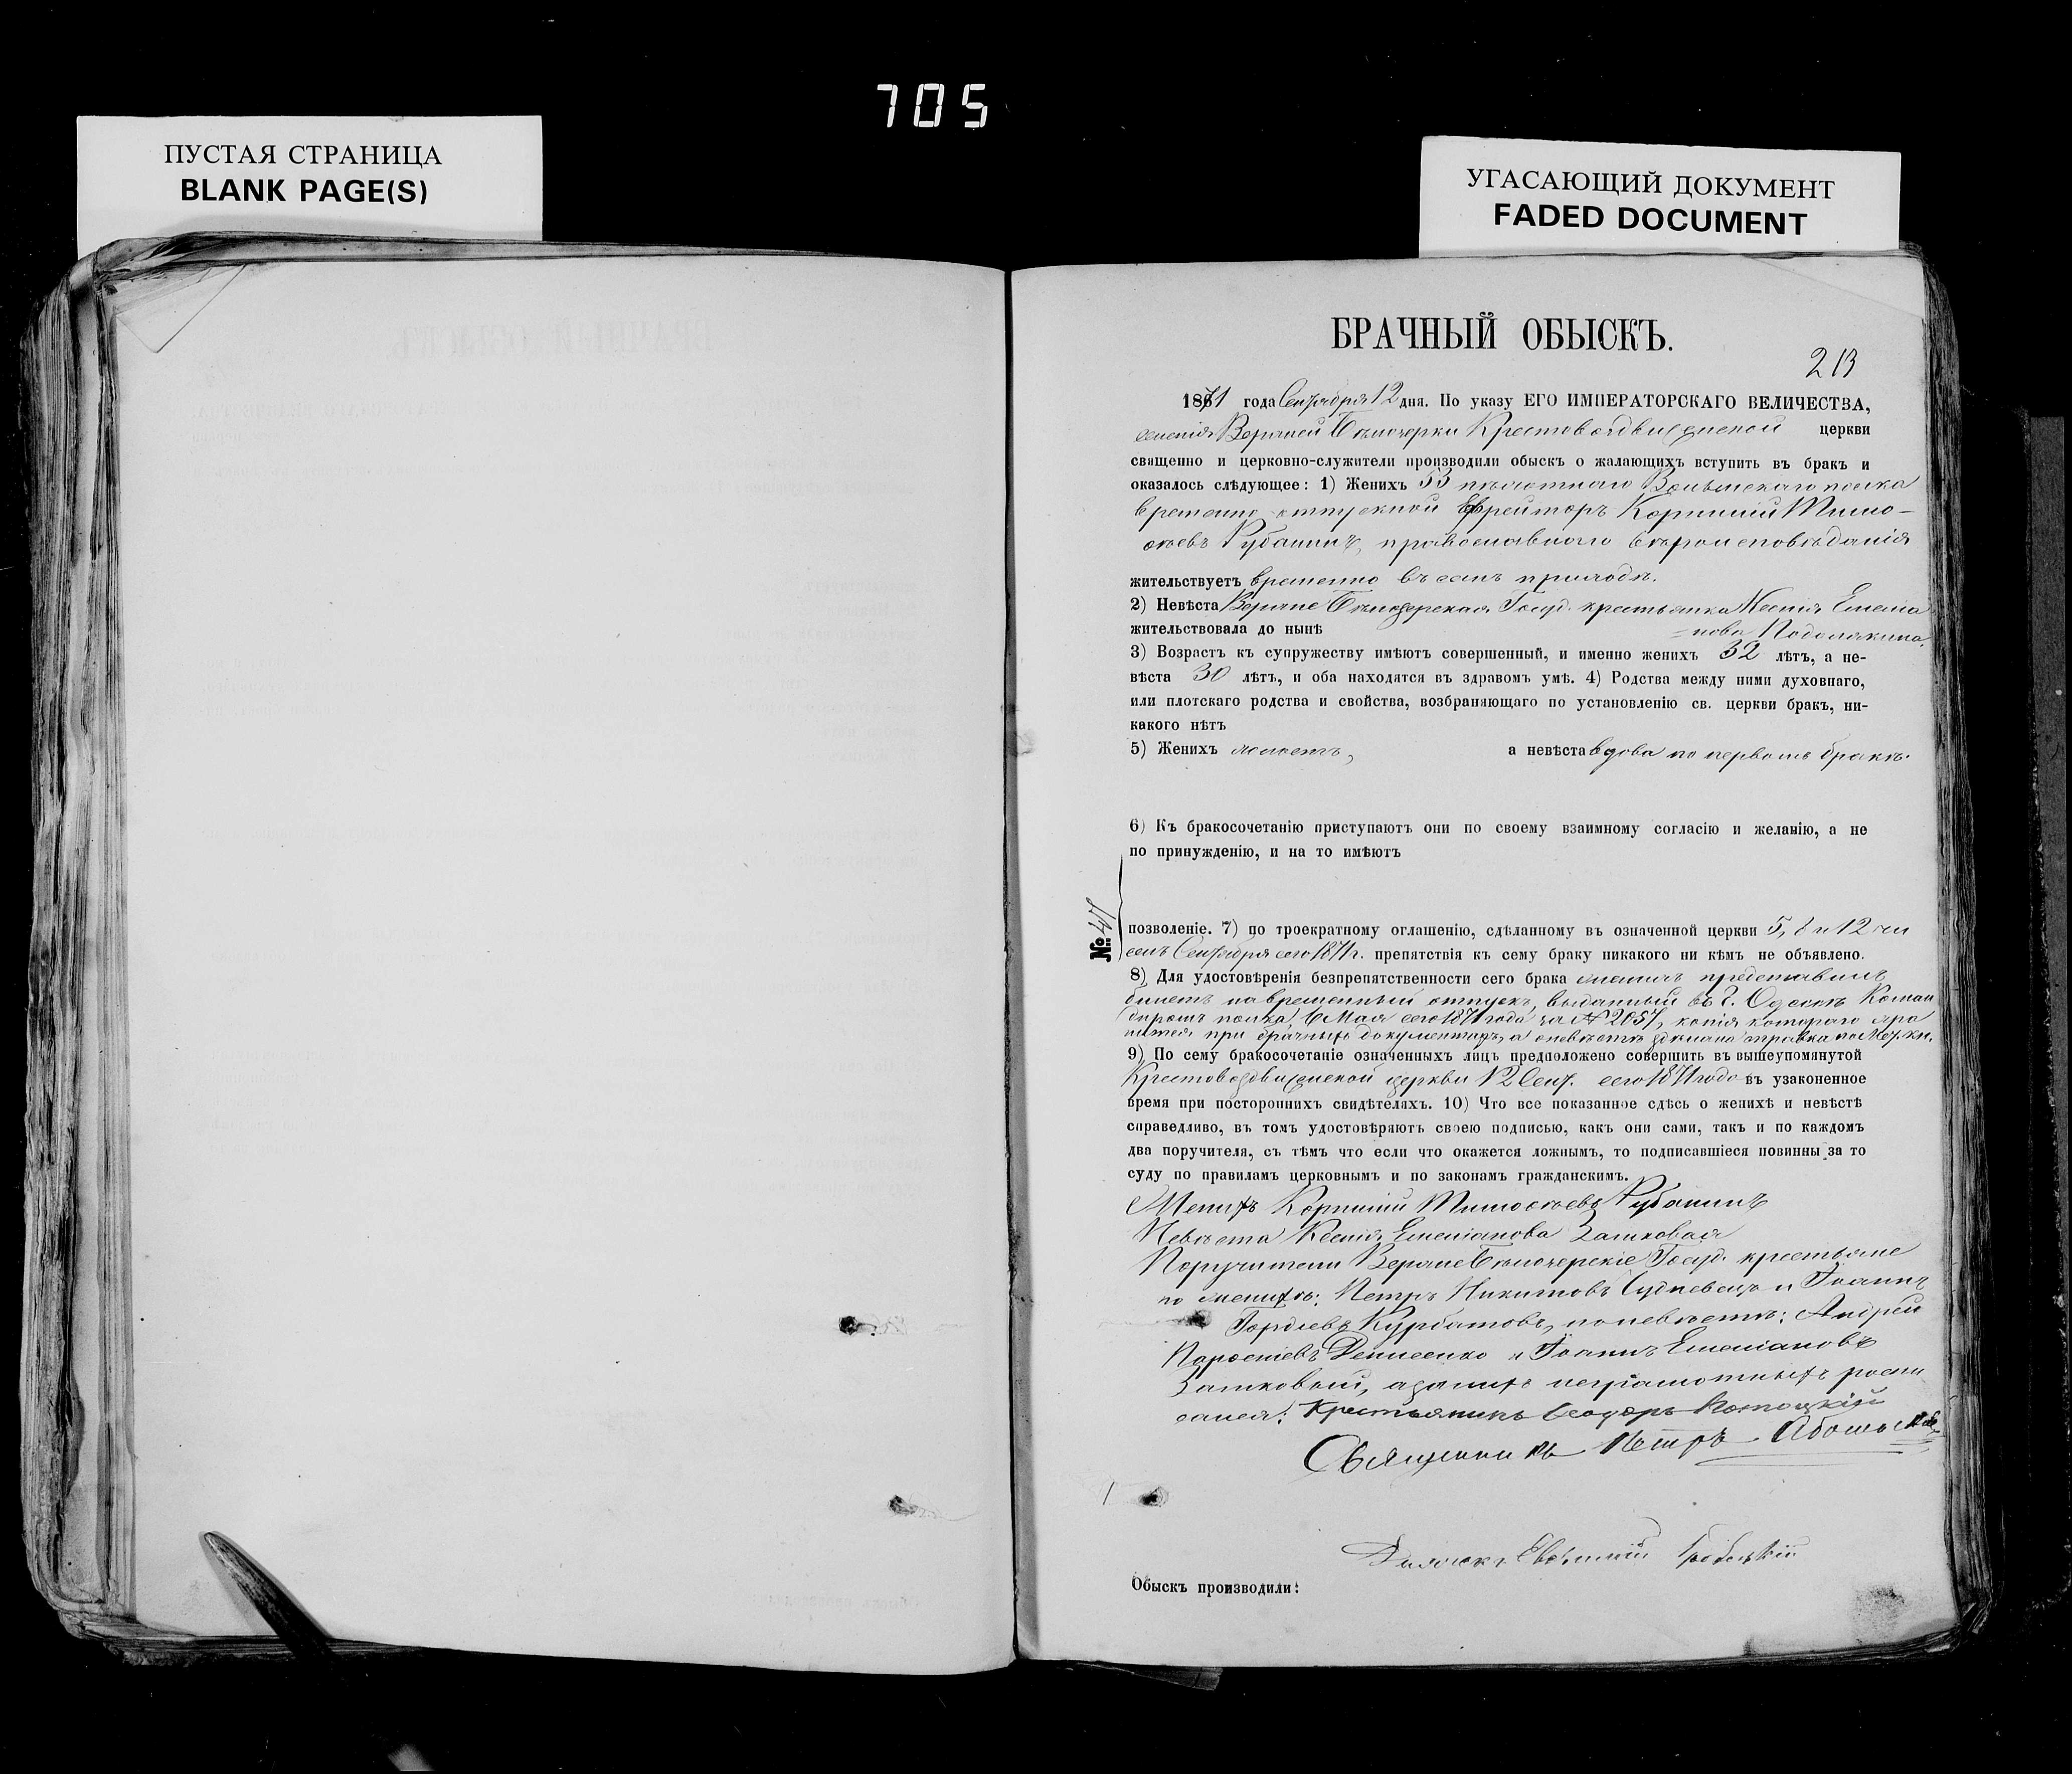 705
ПУСТАЯ СТРАНИЦА
BLANK PAGE(S)
УГАСАЮЩИЙ ДОКУМЕНТ
FADED DOCUMENT
БРАЧНЫЙ ОБЫСКЪ.
213
1871 года Сентября 12 дня. По указу ЕГО ИМПЕРАТОРСКАГО ВЕЛИЧЕСТВА,
селенія Верхней Бѣлозерки Крестовоздвиженской церкви
священно и церковно-служители производили обыскъ о жалающихъ вступить въ бракъ и
оказалось слѣдующее: 1) Женихъ 53 пѣхотнаго Волынскаго полка
временно отпускной Ефрейторъ Корнилій Тимо-
ѳеевъ Рубанинъ, православнаго вѣроисповѣданія
жительствуетъ временно въ семъ приходѣ.
2) Невѣста Верхне Бѣлозерская Госуд. крестьянка Ксенія Емеліа
жительствовала до нынѣ =нова Подолякина,
3) Возрастъ къ супружеству имѣютъ совершенный, и именно женихъ 32 лѣтъ, а не-
вѣста 30 лѣтъ, и оба находятся въ здравомъ умѣ. 4) Родства между ними духовнаго,
или плотскаго родства и свойства, возбраняющаго по установленію св. церкви бракъ, ни-
какого нѣтъ
5) Женихъ холостъ, а невѣста вдова по первомъ бракѣ.
6) Къ бракосочетанію приступаютъ они по своему взаимному согласію и желанію, а не
по принужденію, и на то имѣютъ
№ 47
позволеніе. 7) по троекратному оглашенію, сдѣланному въ означенной церкви 5, 8 и 12 чи
селъ Сентября сего 1871 г. препятствія къ сему браку никакого ни кѣмъ не объявлено.
8) Для удостовѣренія безпрепятственности сего брака женихъ представилъ
билетъ на временный отпускъ, выданный въ г. Одессѣ Коман
диромъ полка 6 Мая сего 1871 года за № 2057, копія котораго хра
нится при брачныхъ документахъ, а о невѣстѣ сдѣлана справка по Мет. кн.
9) По сему бракосочетаніе означенныхъ лицъ предположено совершить въ вышеупомянутой
Крестовоздвиженской церкви 12 Сент. сего 1871 года въ узаконенное
время при постороннихъ свидѣтеляхъ. 10) Что все показанное сдѣсь о женихѣ и невѣстѣ
справедливо, въ томъ удостовѣряютъ своею подписью, какъ они сами, такъ и по каждомъ
два поручителя, съ тѣмъ что если что окажется ложнымъ, то подписавшіеся повинны за то
суду по правиламъ церковнымъ и по законамъ гражданскимъ.
Женихъ Корнилій Тимоѳеевъ Рубанинъ
Невѣста Ксенія Емеліанова Зашковая
Поручители Верхне Бѣлозерскіе Госуд. крестьяне
по женихѣ: Петръ Никитовъ и Іоаннъ
Гордіевъ Курбатовъ, по невѣстѣ: Андрей
Денисенко и Іоаннъ Емеліановъ
Зашковый, а за нихъ неграмотныхъ роспи
сался: Крестьянинъ Ѳеодоръ
Священникъ Петръ
Евѳимій
Обыскъ производили: